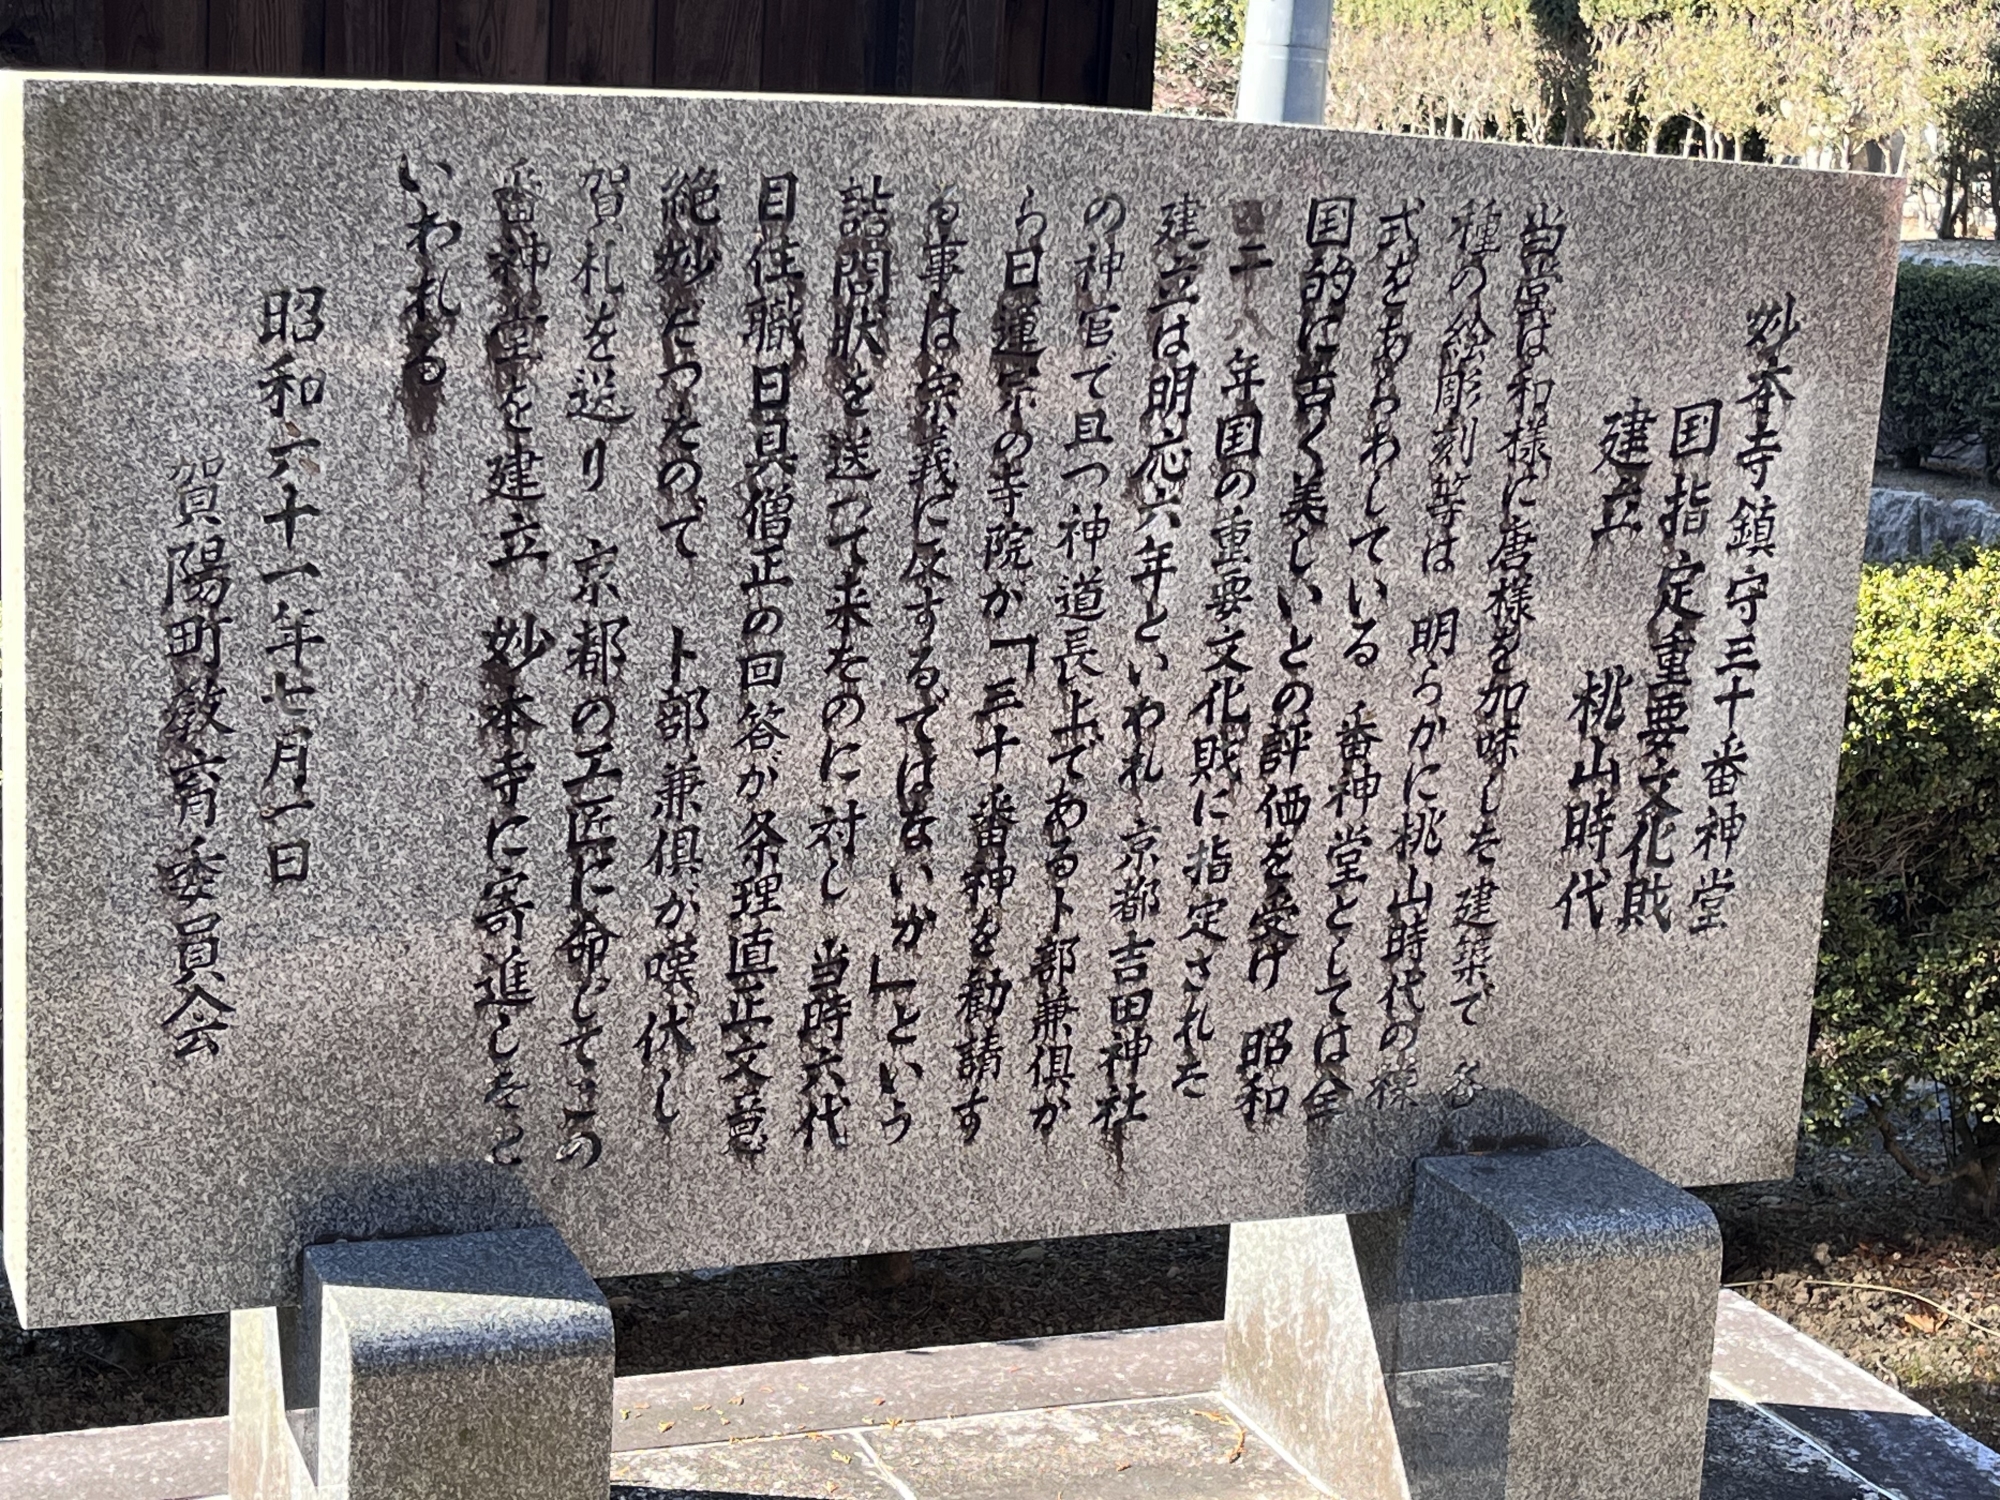 妙本寺鎮守三十番神堂
国指定重要文化財
建立　桃山時代
当堂は和様に唐様を加味した建築で　各
種の絵彫刻等は　明らかに桃山時代の様
式をあらわしている　番神堂としては全
国的に古く美しいとの評価を受け　昭和
二十八年国の重要文化財に指定された
建立は明応六年といわれ　京都吉田神社
の神官で且つ神道長上である卜部兼倶か
ら日蓮宗の寺院が「三十番神を勧請す
る事は宗義に反するではないか」という
詰問状を送つて来たのに対し　当時六代
目住職日具僧正の回答が条理直正文意
絶妙だつたので　卜部兼倶が嘆伏し
賀札を送り　京都の工匠に命じてこの
番神堂を建立　妙本寺に寄進したと
いわれる
昭和六十一年七月一日
賀陽町教育委員会